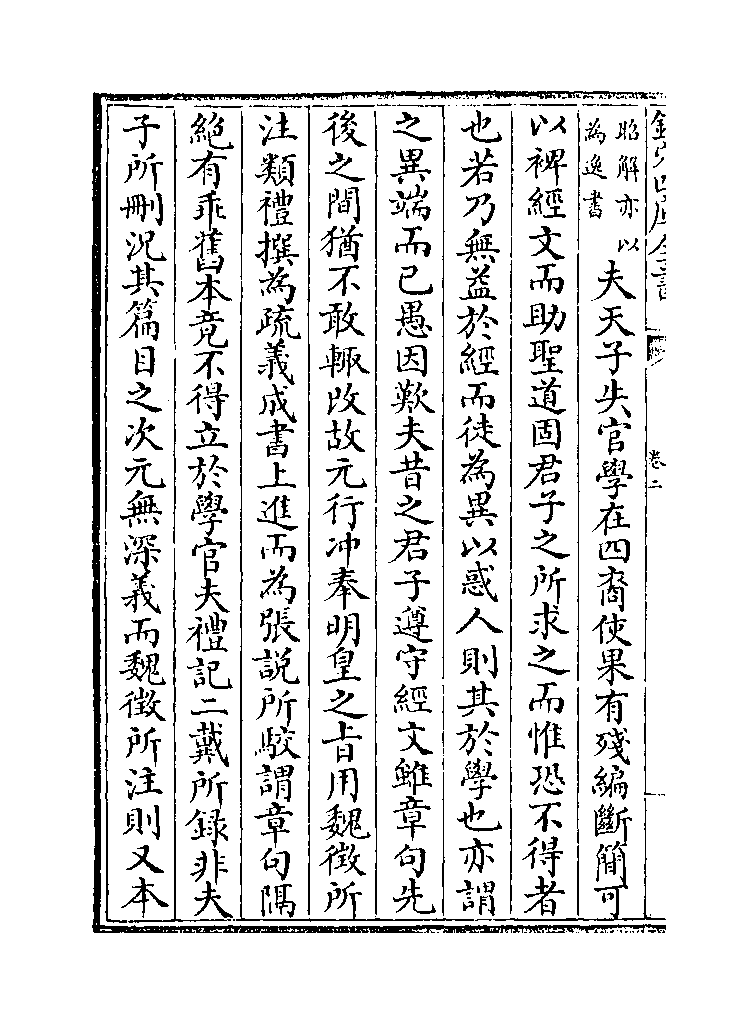 昭解亦以
為逸書
夫天子失官學在四裔使果有殘編斷簡可
以裨經文而助聖道固君子之所求之而惟恐不得者
也若乃無益於經而徒為異以惑人則其於學也亦謂
之異端而已愚因歎夫昔之君子遵守經文雖章句先
後之間猶不敢輙改故元行冲奉明皇之旨用魏徵所
注類禮撰為疏義成書上進而為張説所駮謂章句隔
絶有乖舊本竟不得立於學官夫禮記二戴所録非夫
子所刪況其篇目之次元無深義而魏徵所注則又本
卷二